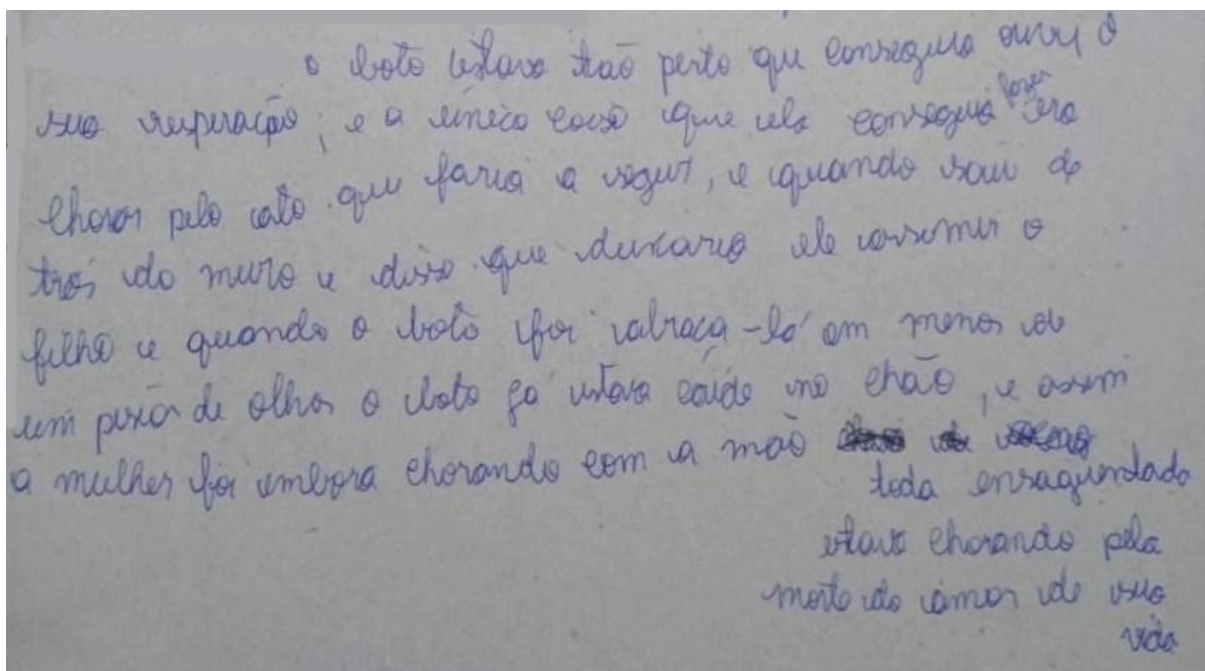 o boto estava tão perto que conseguia ouvi a
sua respiração, e a unica coisa que ela conseguia fazer era
chorar pelo ato que faria a seguir, e quando saiu de
trás do muro e disse que deixaria ele assumir o
filho e quando o boto foi abraça-la em menos de
um piscar de olhos o boto ja estava caido no chão, e assim
a mulher foi embora chorando com a mão
toda ensaguentada
estava chorando pela
morte do amor de sua
vida